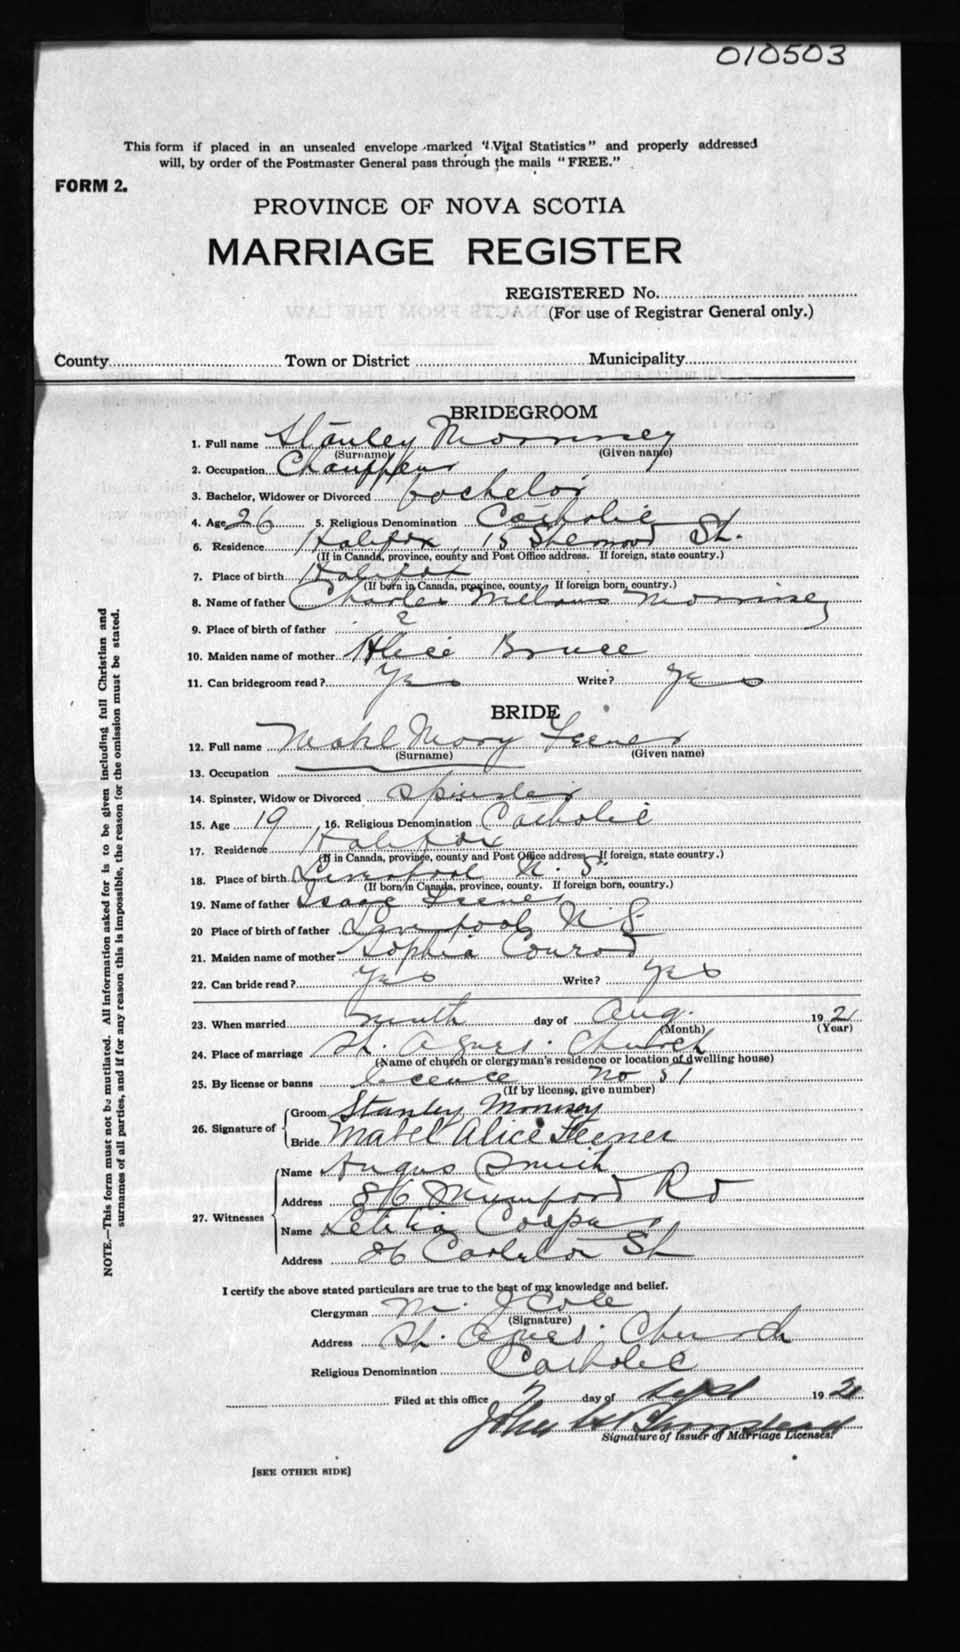 010503
This form if placed in an unsealed envelope marked "Vital Statistics" and properly addressed
will, by order of the Postmaster General pass through the mails "FREE."
FORM 2.
PROVINCE OF NOVA SCOTIA
MARRIAGE REGISTER
REGISTERED No.
(For use of Registrar General only.)
County Town or District Municipality
BRIDEGROOM
1. Full name Stanley Morrisey
(Surname) (Given name)
2. Occupation Chauffeur
3. Bachelor, Widower or Divorced bachelor
4. Age 26 5. Religious Denomination Catholic
6. Residence Halifax, 15 Sherwood St.
(If in Canada, province, county and Post Office address. If foreign, state country.)
7. Place of birth Halifax
(If born in Canada, province, county. If foreign born, country.)
8. Name of father Charles Morrisey
9. Place of birth of father ?
10. Maiden name of mother Alice Bruce
11. Can bridegroom read? Yes Write? yes
BRIDE
12. Full name Mabel Mary Feener
(Surname) (Given name)
13. Occupation
14. Spinster, Widow or Divorced spinster
15. Age 19 16. Religious Denomination Catholic
17. Residence Halifax
(If in Canada, province, county and Post Office address. If foreign, state country.)
18. Place of birth Liverpool N. S.
(If born in Canada, province, county. If foreign born, country.)
19. Name of father Isaac Feener
20 Place of birth of father Liverpool N. S.
21. Maiden name of mother Sophia Conrod
22. Can bride read? Yes Write? Yes
23. When married ninth day of Aug. 1921
(Month) (Year)
24. Place of marriage St. Agnes. Church
(Name of church or clergyman's residence or location of dwelling house)
25. By license or banns licence No 51
(If by license, give number)
26. Signature of Groom Stanley Morrisey
Bride Mabel Alice Feener
27. Witnesses Name Angus Smith
Address 86 Mumford Rd
Name Letitia Cooper
Address 86 Carleton St
I certify the above stated particulars are true to the best of my knowledge and belief.
Clergyman M. J Cole
(Signature)
Address St. Agnes. Church
Religious Denomination Catholic
Filed at this office 7 day of Sept 1921
John
Signature of Issuer of Marriage Licenses.
[SEE OTHER SIDE]
NOTE.—This form must not be mutilated. All information asked for is to be given including full Christian and
surnames of all parties, and if for any reason this is impossible, the reason for the omission must be stated.